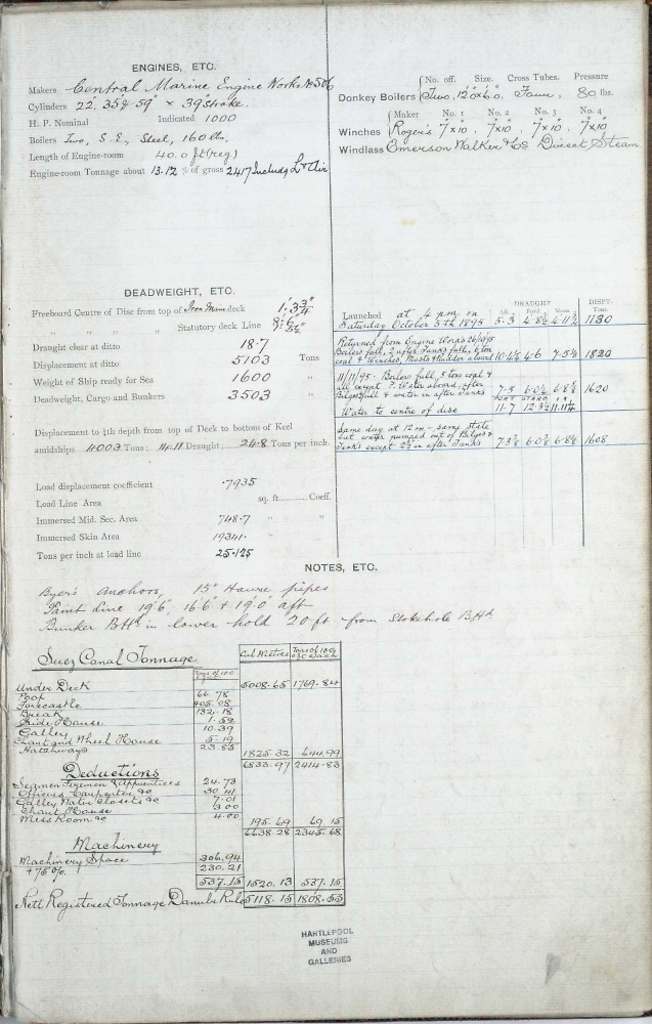 ENGINES, ETC.
Makers Central Marine Engine Works No 506
Cylinders 22", 35" & 59" × 39" stroke.
H. P. Nominal Indicated 1000
Boilers Two, S. E., Steel, 160 lbs.
Length of Engine-room 40.0 ft (reg)
Engine-room Tonnage about 13.12 % of gross 2417 Includg L & Air
No. off. Size. Cross Tubes. Pressure
Donkey Boilers Two, 12'0" × 6'0. Four, 80 lbs.
Maker No. 1 No. 2 No. 3 No. 4
Winches Roger's 7"×10" 7"×10" 7"×10" 7"×10"
Windlass Emerson Walker & Co Direct Steam
DEADWEIGHT, ETC.
Freeboard Centre of Disc from top of Iron Main deck
" " " " " Statutory deck Line
Draught clear at ditto 18.7
Displacement at ditto 5103 Tons
Weight of Ship ready for Sea 1600 "
Deadweight, Cargo and Bunkers 3503 "
Displacement to ¼th depth from top of Deck to bottom of Keel
amidships 4003 Tons; 14.11 Draught; 24.8 Tons per inch.
Load displacement coefficient .7935
Load Line Area sq. ft. Coeff.
Immersed Mid. Sec. Area 748.7 " "
Immersed Skin Area 19341.
Tons per inch at load line 25.125
DRAUGHT DISPT.
Aft. Ford. Mean. Tons.
Launched at 4 pm on
Saturday October 5th 1895 5.3 4.8½ 4.11¾ 1130
Returned from Engine Works 26/10/95
Boilers full, 2 after Tanks full,
coal & Winches, Masts & Rudder aboard 10.4½ 4.6 7.5¼ 1820
11/11/95. Boilers full, 5 tons coal &
Water aboard, after
Bilges full & water in after Tanks 7.5 6.0½ 6.8¾ 1620
PORT STARD
Water to centre of disc 11.7 12.3½ 11.11¼
Same day at 12 m - same state
but water pumped out of Bilges &
Tanks except 2½ in after Tanks 6.0¾ 1608
NOTES, ETC.
Byer's Anchors, 15" Hawse pipes
Paint Line 19'6", 16'6" & 19'0" aft
Bunker BHd in lower hold 20 ft from Stokehole BHd
Suez Canal Tonnage
Cub Metres Tons of 100
Tons of 100
Under Deck 5008.65 1769.84
Poop 66.78
Forecastle 405.08
Break 132.18
Side House 1.52
Galley 10.39
Chart and Wheel House 5.19
Hatchways 23.85 1825.32 644.99
6833.97 2414.83
Deductions
Seamen Firemen & Apprentices 24.73
Officers Carpenter &c 30.41
Galley Water Closets &c 7.01
Chart House 3.00
Mess Room &c 4.00 195.69 69.15
6638.28 2345.68
Machinery
Machinery Space 306.94
+ 75 o/o. 230.21
537.15 1520.13 537.15
Nett Registered Tonnage Danube Rule 5118.15 1808.53
HARTLEPOOL
MUSEUMS
AND
GALLERIES